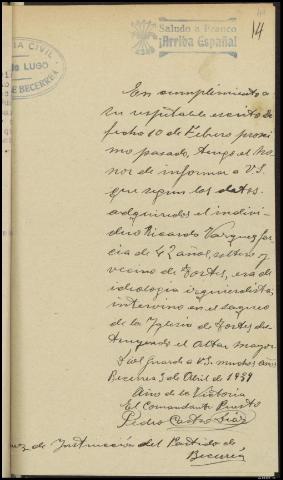 14
Saludo a Franco
¡Arriba España!
IA CIVIL
LUGO
DE BECERREA
En cumplimiento a
su respetable escrito de
fecha 10 de Febrero proxi
mo pasado, tengo el ho
nor de informar a V.S.
que segun los datos
adquiridos el indivi-
duo Ricardo Vazquez Gar
cia de 42 años, soltero y
vecino de Tortes, era de
ideologia izquierdista,
intervino en el saqueo
de la Iglesia de Tortes des
truyendo el altar mayor
Dios Guarde a V.S. muchos años
Becerrea 3 de Abril de 1939
Año de la Victoria
El Comandante Puesto
Pedro Castro Diaz
de Instrucción del Partido de
Becerreá